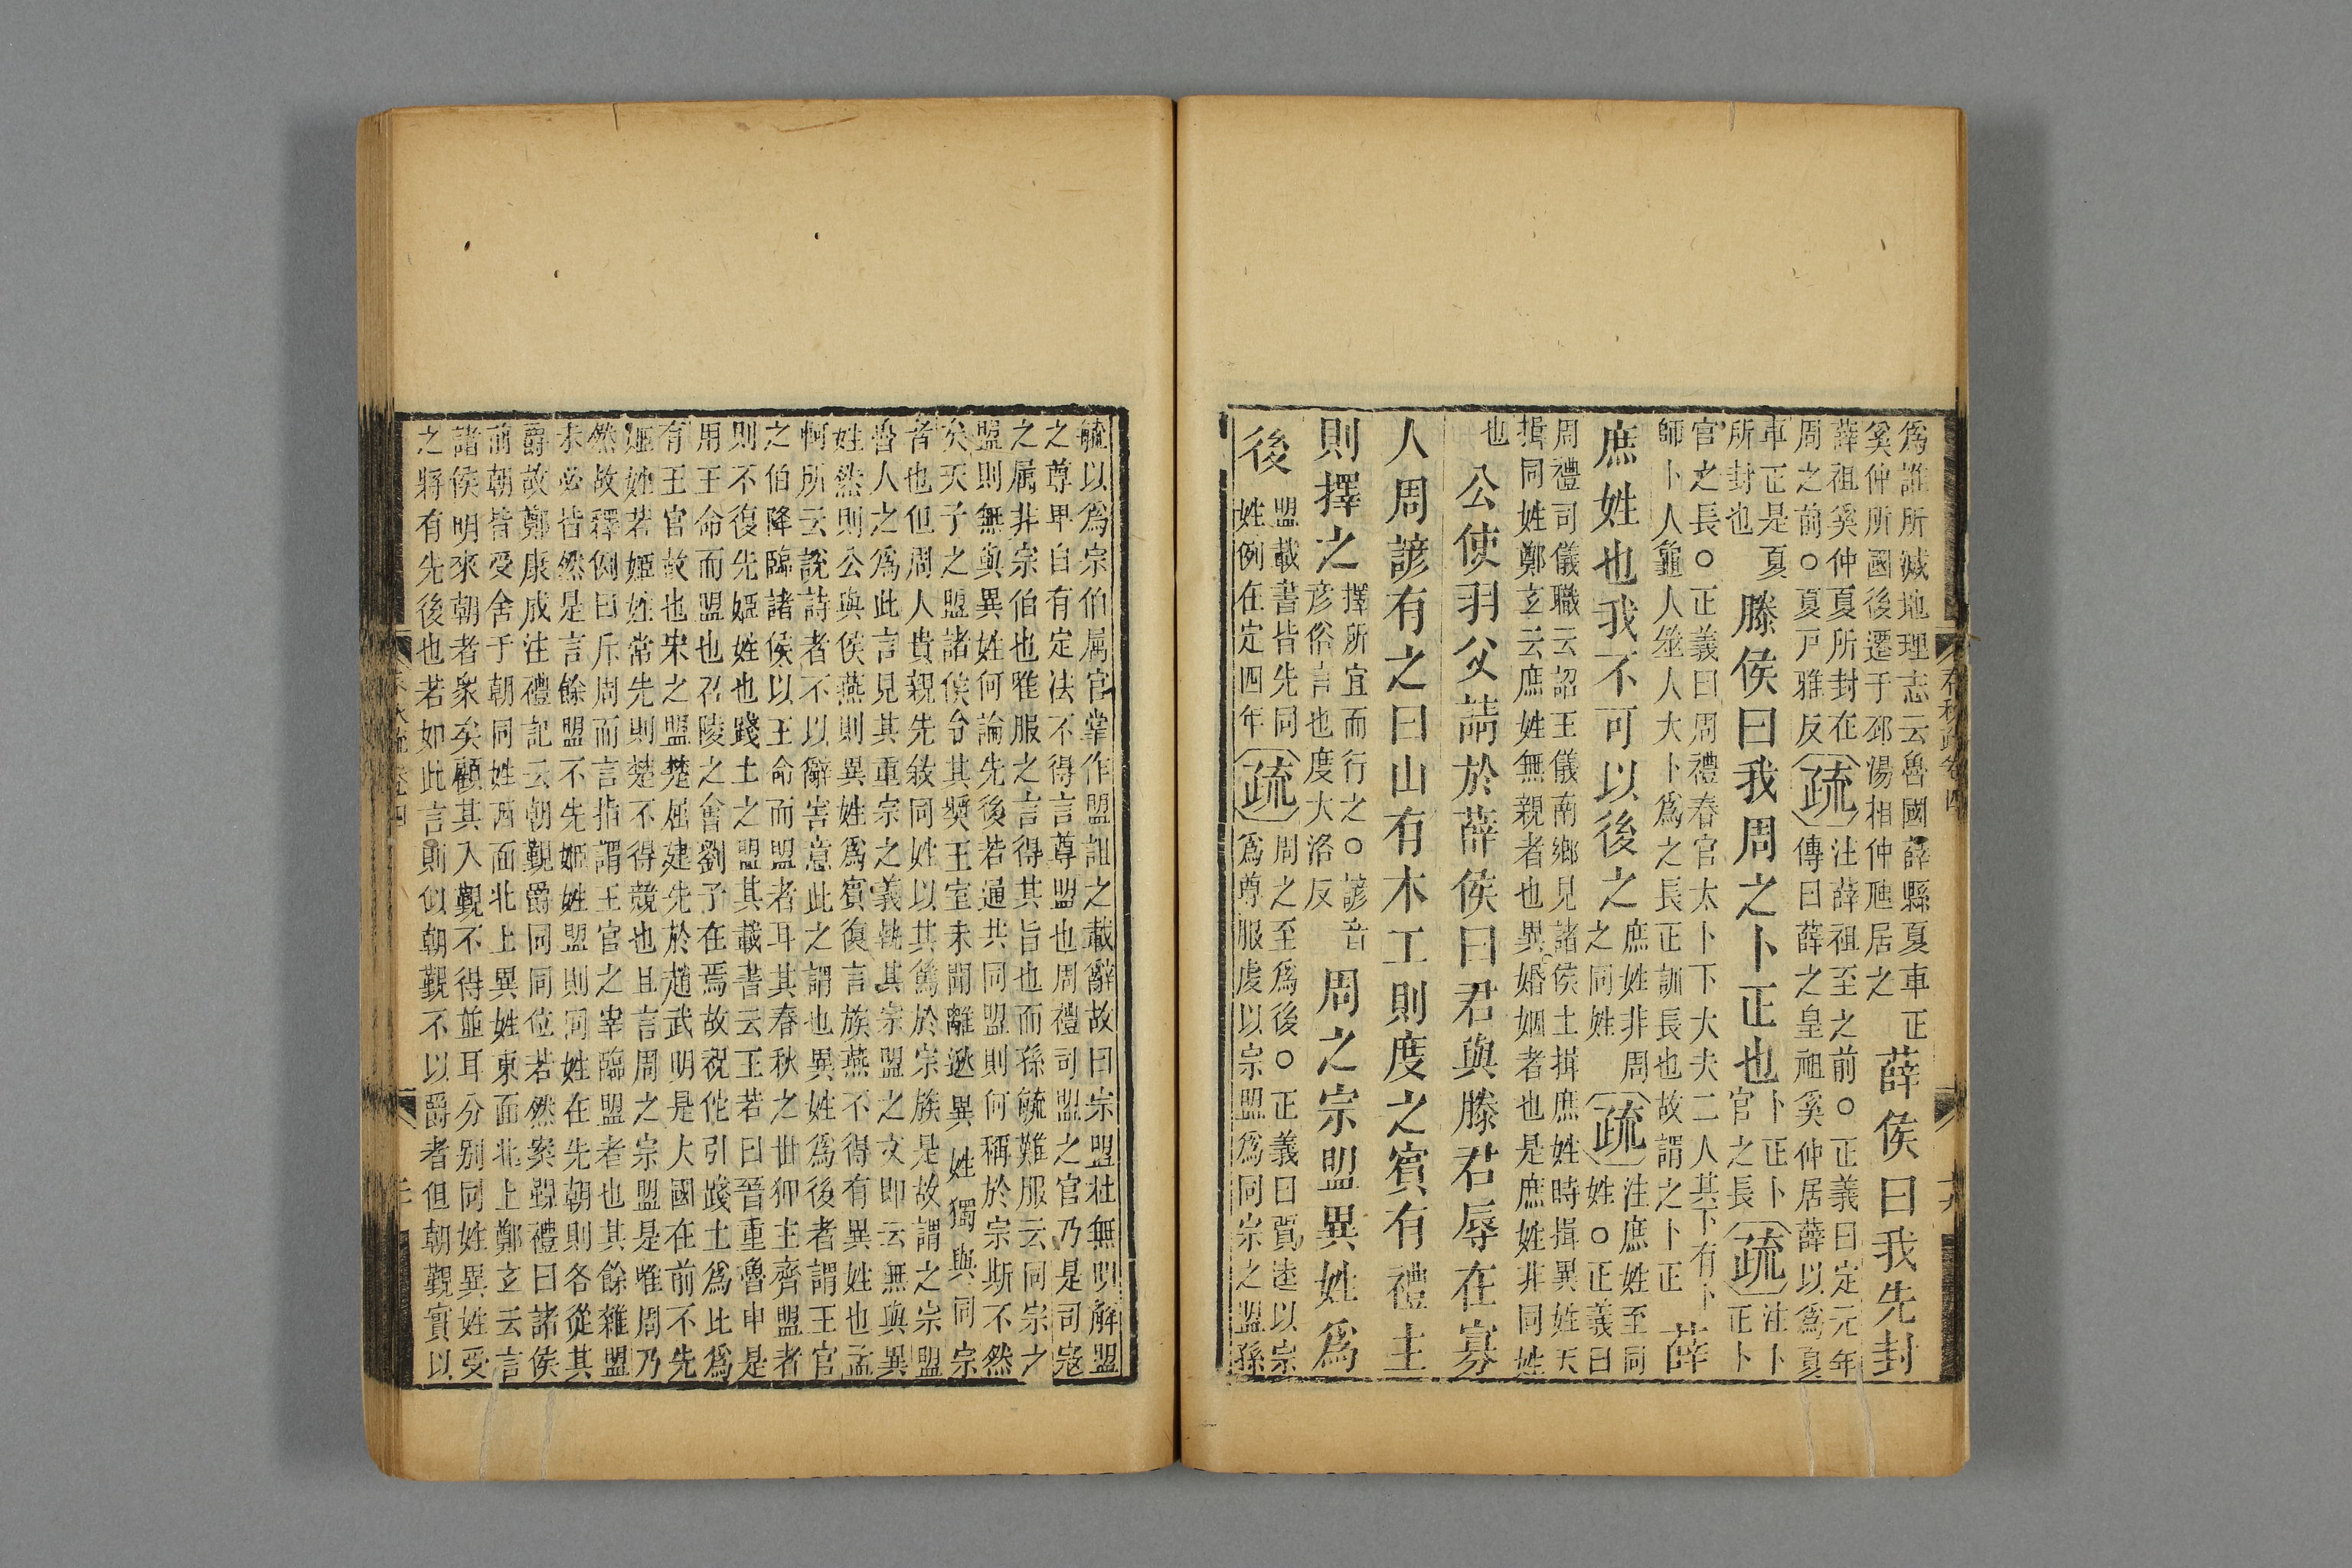 爲誰所滅地理志云魯國薛縣夏車正
奚仲所國後遷于邳湯相仲虺居之
薛侯曰我先封
薛祖奚仲夏所封在
周之前○夏戸雅反
疏
注薛祖至之前○正義曰定元年
傳曰薛之皇祖奚仲居薛以爲夏
車正是夏
所封也
滕侯曰我周之卜正也
卜正卜
官之長
疏
注卜
正卜
官之長○正義曰周禮春官太卜下大夫二人其下有卜
師卜人龜人簭人大卜爲之長正訓長也故謂之卜正
薛
庶姓也我不可以後之
庶姓非周
之同姓
疏
注庶姓至同
姓○正義曰
周禮司儀職云詔王儀南鄉見諸侯土揖庶姓時揖異姓天
揖同姓鄭玄云庶姓無親者也異婚姻者也是庶姓非同姓
也
公使羽父請於薛侯曰君與滕君辱在寡
人周諺有之曰山有木工則度之賓有禮主
則擇之
擇所宜而行之○諺音
彦俗言也度大洛反
周之宗盟異姓爲
後
盟載書皆先同
姓例在定四年
疏
周之至爲後○正義曰賈逵以宗
爲尊服虔以宗盟爲同宗之盟孫
毓以爲宗伯属官掌作盟詛之載辭故曰宗盟杜無明解盟
之尊卑自有定法不得言尊盟也周禮司盟之官乃是司寇
之属非宗伯也唯服之言得其旨也而孫毓難服云同宗之
盟則無與異姓何論先後若通共同盟則何稱於宗斯不然
矣天子之盟諸侯令其奬王室未聞離逖異姓獨與同宗
者也但周人貴親先敘同姓以其篤於宗族是故謂之宗盟
魯人之爲此言見其重宗之義執其宗盟之文即云無與異
姓然則公與侯燕則異姓爲賓復言族燕不得有異姓也孟
軻所云說詩者不以辭害意此之謂也異姓爲後者謂王官
之伯降臨諸侯以王命而盟者耳其春秋之世狎主齊盟者
則不復先姬姓也踐土之盟其載書云王若曰晉重魯申是
用王命而盟也召陵之會劉子在焉故祝佗引踐土爲比爲
有王官故也宋之盟楚屈建先於趙武明是大國在前不先
姬姓若姬姓常先則楚不得競也且言周之宗盟是唯周乃
然故釋例曰斥周而言指謂王官之宰臨盟者也其餘雜盟
未必皆然是言餘盟不先姬姓盟則同姓在先朝則各從其
爵故鄭康成注禮記云朝覲爵同同位若然案覲禮曰諸侯
前朝皆受舍于朝同姓西面北上異姓東面北上鄭玄云言
諸侯明來朝者衆矣顧其入覲不得並耳分别同姓異姓受
之將有先後也若如此言則似朝覲不以爵者但朝覲實以